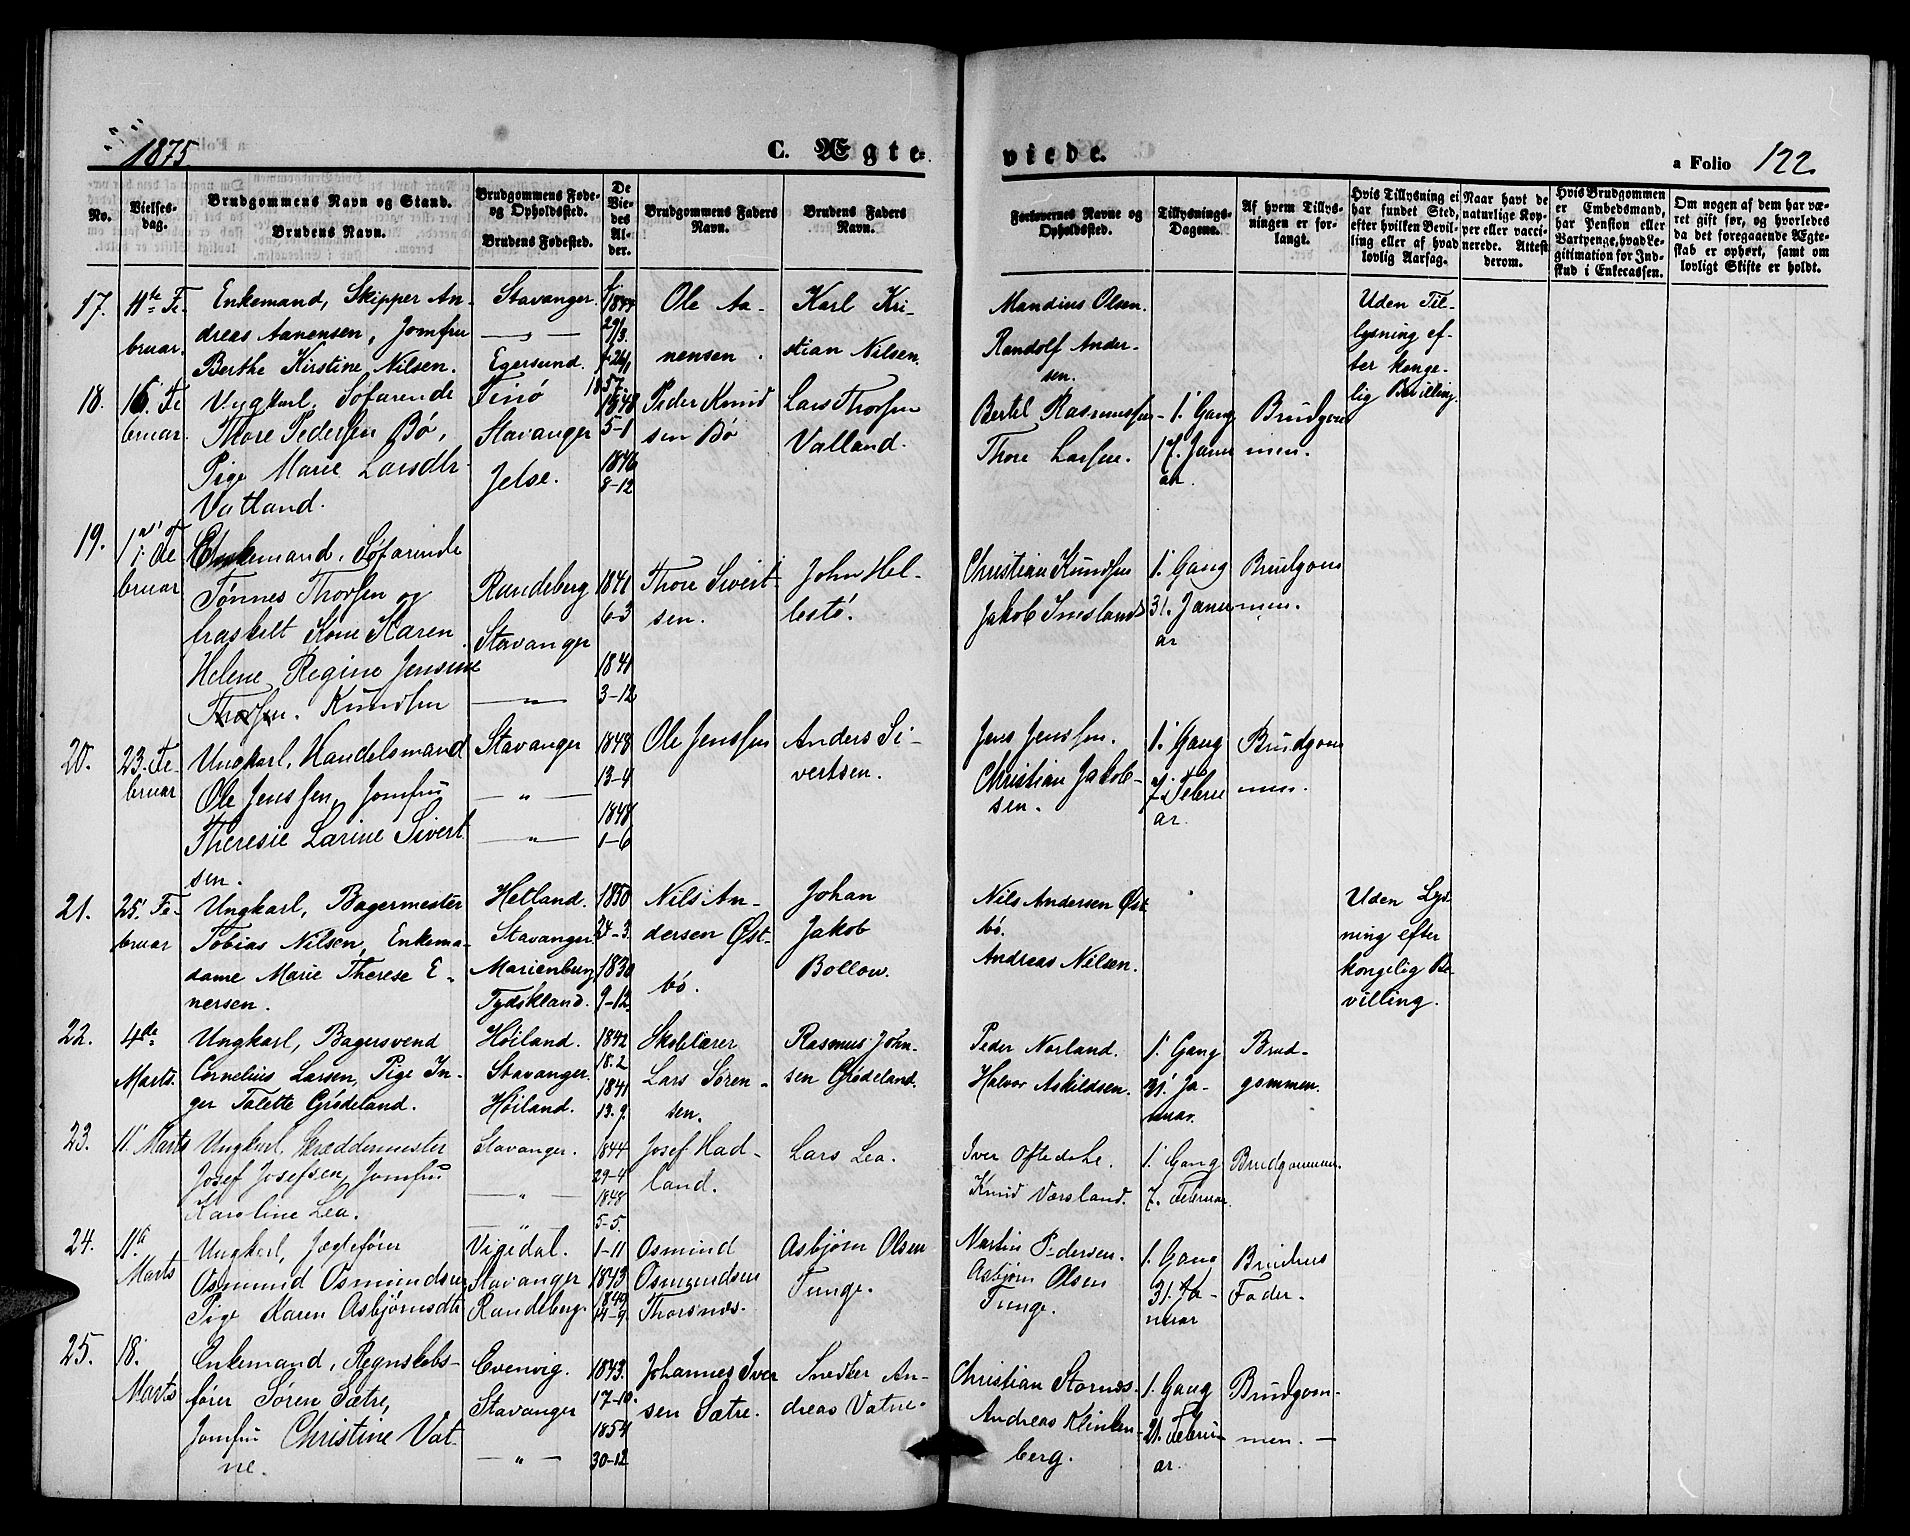 1875
C. Ægte
viede.
a Folio 122.
No.
Vielses-
dag.
Brudgommens Navn og Stand.
Brudens Navn.
Brudgommens Føde-
og Opholdssted.
Brudens Fødested.
De
Vie-
des
Al-
der.
Brudgommens Faders
Navn.
Brudens Faders
Navn.
Forlovernes Navne og
Opholdssted.
Tillysnings-
Dagene.
Af hvem Tillys-
ningen er for-
langt.
Hvis Tillysning ei
har fundet Sted,
efter hvilken Bevil-
ling eller af hvad
lovlig Aarsag.
Naar havt de
naturlige Kop-
per eller vacci-
nerede. Attest
derom.
Hvis Brudgommen
er Embedsmand,
har Pension eller
Vartpenge, hvad Le-
gitimation for Ind-
skud i Enkecassen.
Om nogen af dem har væ-
ret gift før, og hvorledes
da det foregaaende Ægte-
skab er ophørt, samt om
lovligt Skifte er holdt.
17.
11te Fe-
bruar.
Enkemand, Skipper An-
dreas Aanensen, Jomfru
Berthe Kirstine Nilsen.
Stavanger.
— " —
Egersund.
1844
29/3.
26/1
1857
Ole Aa-
nensen.
Karl Kri-
stian Nilsen.
Mandius Olsen.
Randolf Ander-
sen.
Uden Til-
lysning ef-
ter konge-
lig Bevilling
18.
16. Fe
bruar.
Ungkarl, Søfarende
Thore Pedersen Bø,
Pige Marie Larsdtr
Vatland.
Finø
Stavanger
Jelse.
1848
5-1
1846
8-12
Peder Knud
sen Bø
Lars Thorsen
Valland.
Bertel Rasmussen
Thore Larsen.
1. Gang
17. Janu
ar.
Brudgom
men.
19.
Fe
bruar
Enkemand, Søfarende
Tønnes Thorsen og
fraskilt Kone Karen
Helene Regine Jensine
Thorsen. Knudsen
Randeberg
Stavanger
— " —
1841
6-3
1841
3-12
Thore Sivert
sen.
John Hel-
lestø.
Christian Knudsen
Jakob Imsland
1. Gang
31. Janu
ar
Brudgom
men.
20.
23. Fe-
bruar
Ungkarl, Handelsmand
Ole Jenssen, Jomfru
Theresie Larine Sivert
sen.
Stavanger
— " —
— " —
1848
13-9
1848
1-6
Ole Jenssen
Anders Si-
vertsen.
Jens Jenssen.
Christian Jakob-
sen.
1. Gang
7. Febru
ar.
Brudgom
men.
21.
25. Fe-
bruar
Ungkarl, Bagermester
Tobias Nilsen, Enkema-
dame Marie Therese E-
nersen.
Hetland.
Stavanger.
Marienburg
Tydskland.
1850
24-3.
1830
9-12.
Nils An-
dersen Øst-
bø.
Johan
Jakob
Bollow.
Nils Andersen Øst
bø.
Andreas Nilsen.
Uden Lys-
ning efter
kongelig Be-
villing.
22.
4de
Marts.
Ungkarl, Bagersvend
Cornelius Larsen, Pige In-
ger Talette Grødeland.
Høiland.
Stavanger.
Høiland.
1842
18.2
1841
13.9.
Skolelærer
Lars Søren-
sen.
Rasmus John-
sen Grødeland.
Peder Norland.
Halvor Askildsen.
1. Gang
31. Ja-
nuar.
Brud-
gommen.
23.
11. Marts
Ungkarl, Skræddermester
Josef Josefsen, Jomfru
Karoline Lea.
Stavanger.
— " —
1844
29-4
1848
5-5.
Josef Had-
land.
Lars Lea.
Iver Oftedahl.
Knud Værsland.
1. Gang
7. Februar.
Brudgommen.
24.
11te
Marts
Ungkarl, Jægtefører
Osmund Osmundsen
Pige Maren Asbjørnsdtr
Vigedal.
Stavanger
Randeberg.
1-11
1843
1849
11-9.
Osmind
Osmundsen
Thorsnæs.
Asbjørn Olsen
Tunge.
Martin Pedersen.
Asbjørn Olsen
Tunge.
1. Gang
31. Ja-
nuar
Brudens
Fader.
25.
18.
Marts
Enkemand, Regnskabs-
fører Sören Sætre,
Jomfru Christine Vat-
ne.
Evenvig.
Stavanger
— " —
1843.
17-10.
1854
30-12
Johannes Iver
sen Sætre.
Snedker An-
dreas Vatne.
Christian Stornæs.
Andreas Klinken-
berg.
1. Gang
21. Febru-
ar.
Brudgom-
men. —